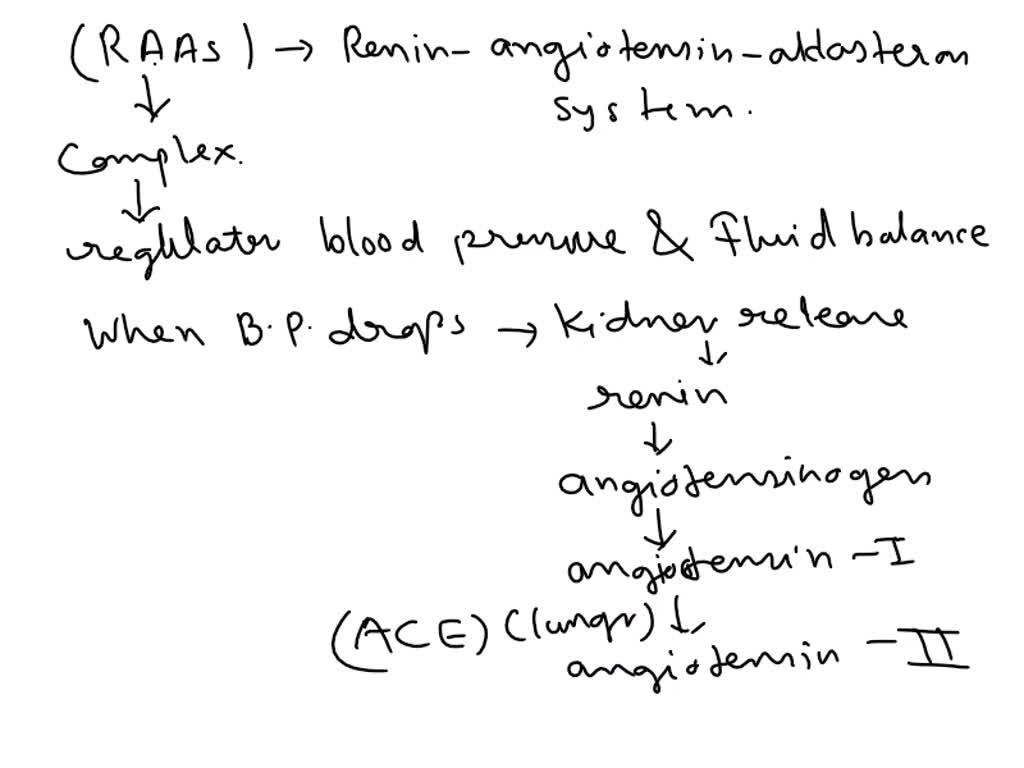 (RAAs) → Renin-angiotensin-aldosteron
system.
↓
Complex.
↓
regulator blood pressure & Fluid balance
When B.P. drops → Kidney release
↓
renin
↓
angiotensinogen
↓
angiotensin -I
(ACE) (lungs) ↓
angiotensin -II